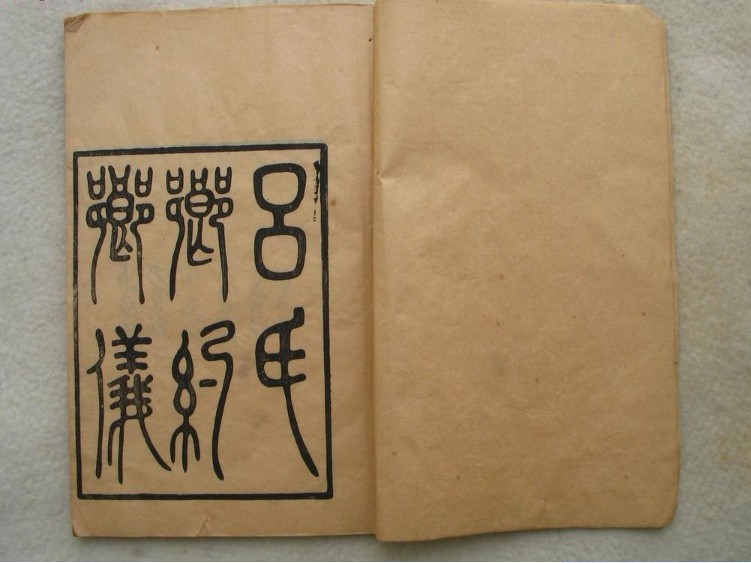 呂氏
鄉約
鄉儀